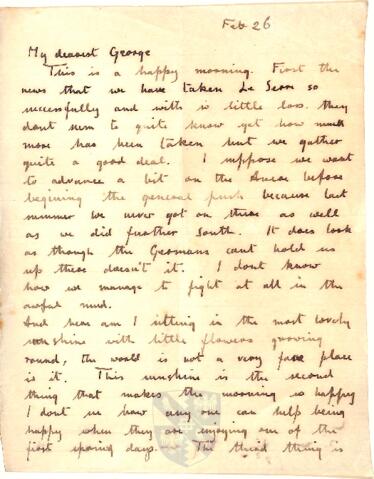 Feb 26
My dearest George
This is a happy morning. First the
news that we have taken Le Serre so
successfully and with so little loss. they
dont seem to quite know yet how much
more has been taken but we gather
quite a good deal. I suppose we want
to advance a bit on the Ancre before
beginning the general push because last
summer we never got on there as well
as we did further South. It does look
as though the Germans cant hold us
up there doesn't it. I dont know
how we manage to fight at all in the
awful mud.
And hear am I sitting in the most lovely
sunshine with little flowers growing
round, the world is not a very fare place
is it. This sunshine is the second
thing that makes the morning so happy
I dont see how any one can help being
happy when they are enjoying one of the
first spring days. The third thing is